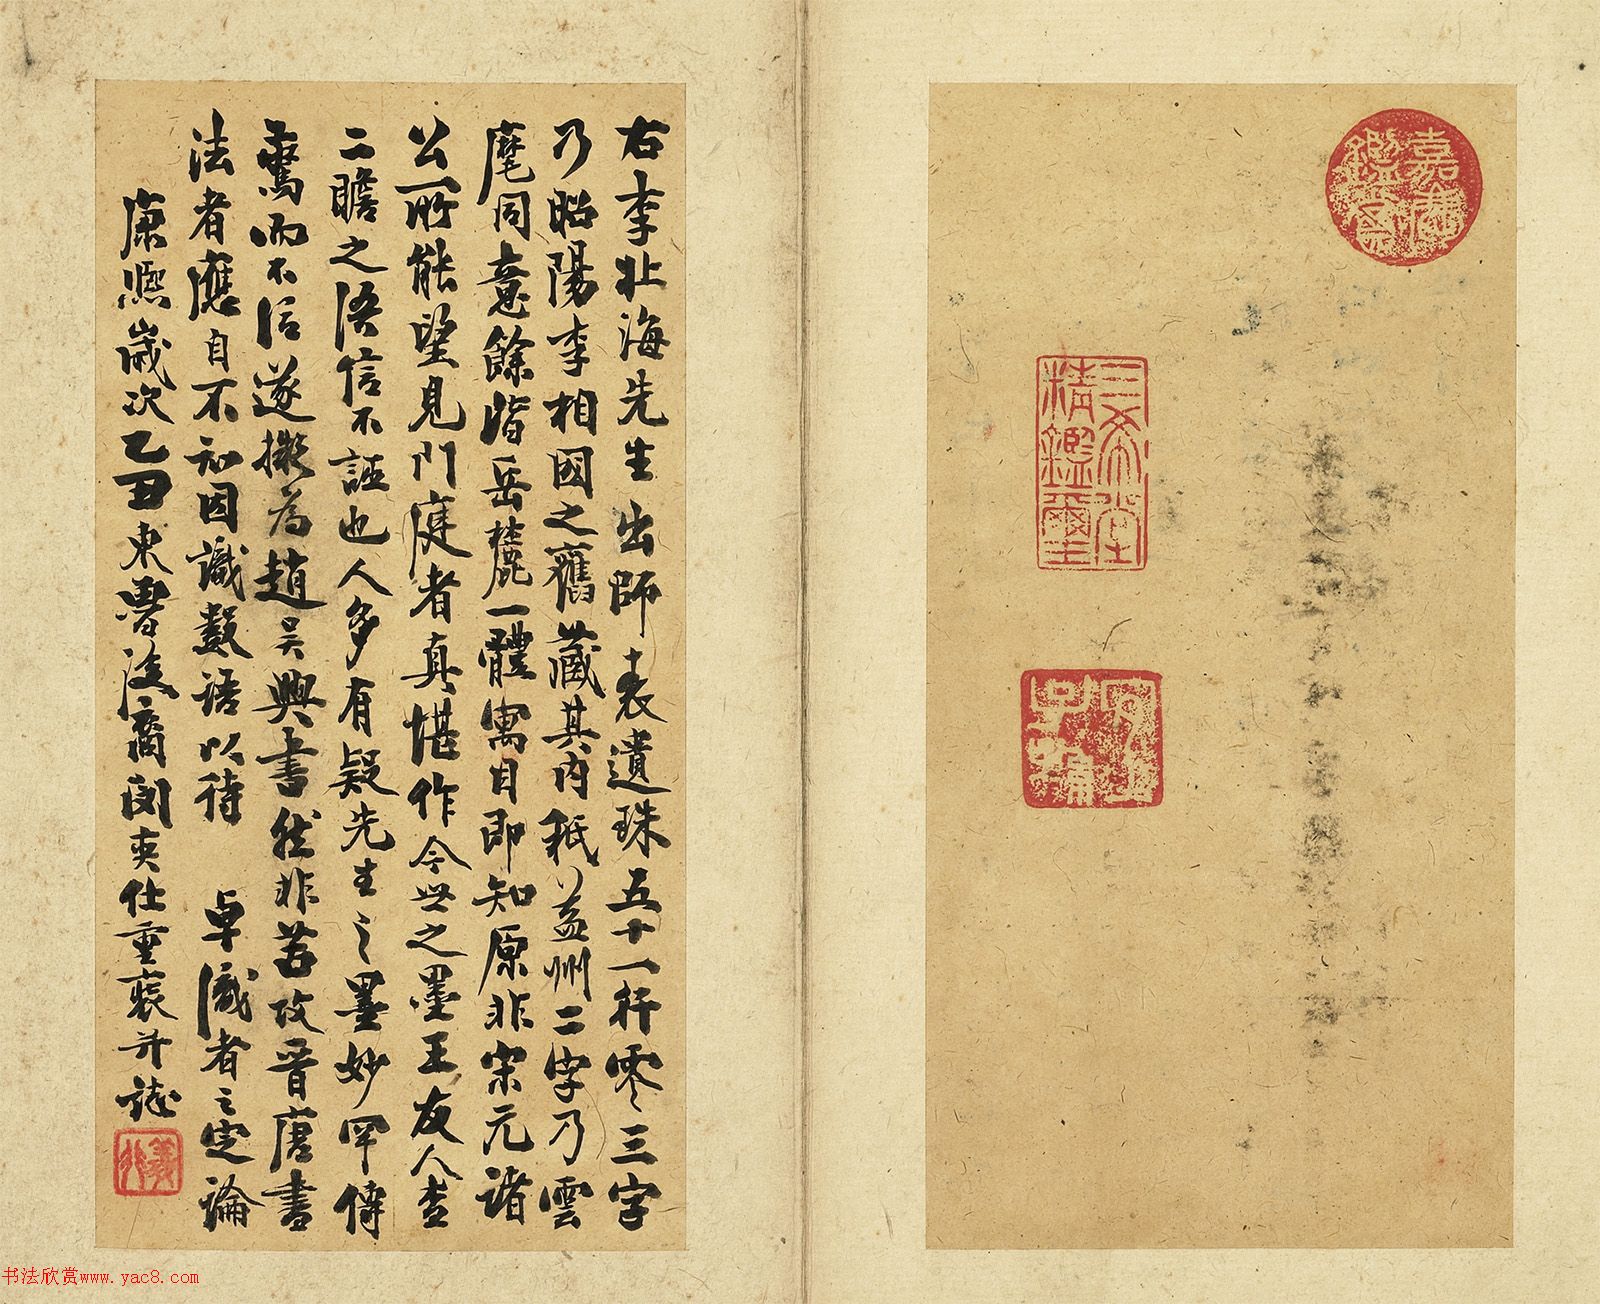 嘉慶鑑賞
三希堂精鑑璽
宜子孫
右李北海先生出師十表遺珠五十一行零三字
乃昭陽李相國之舊藏其內秖益州二字乃雲
麾同意餘皆岳麓一體寓目即知原非宋元諸
公所能望見門庭者真堪作今世之墨王友人查
二瞻之語信不誣也人多有疑先生之墨妙罕傳
驚而不信遂擬為趙吳興書然非若攷晉唐書
法者應自不知因識數語以待 卓識者之定論
康熙歲次乙丑東魯後裔閔奕仕重裝并誌
书法欣赏www.yac8.com